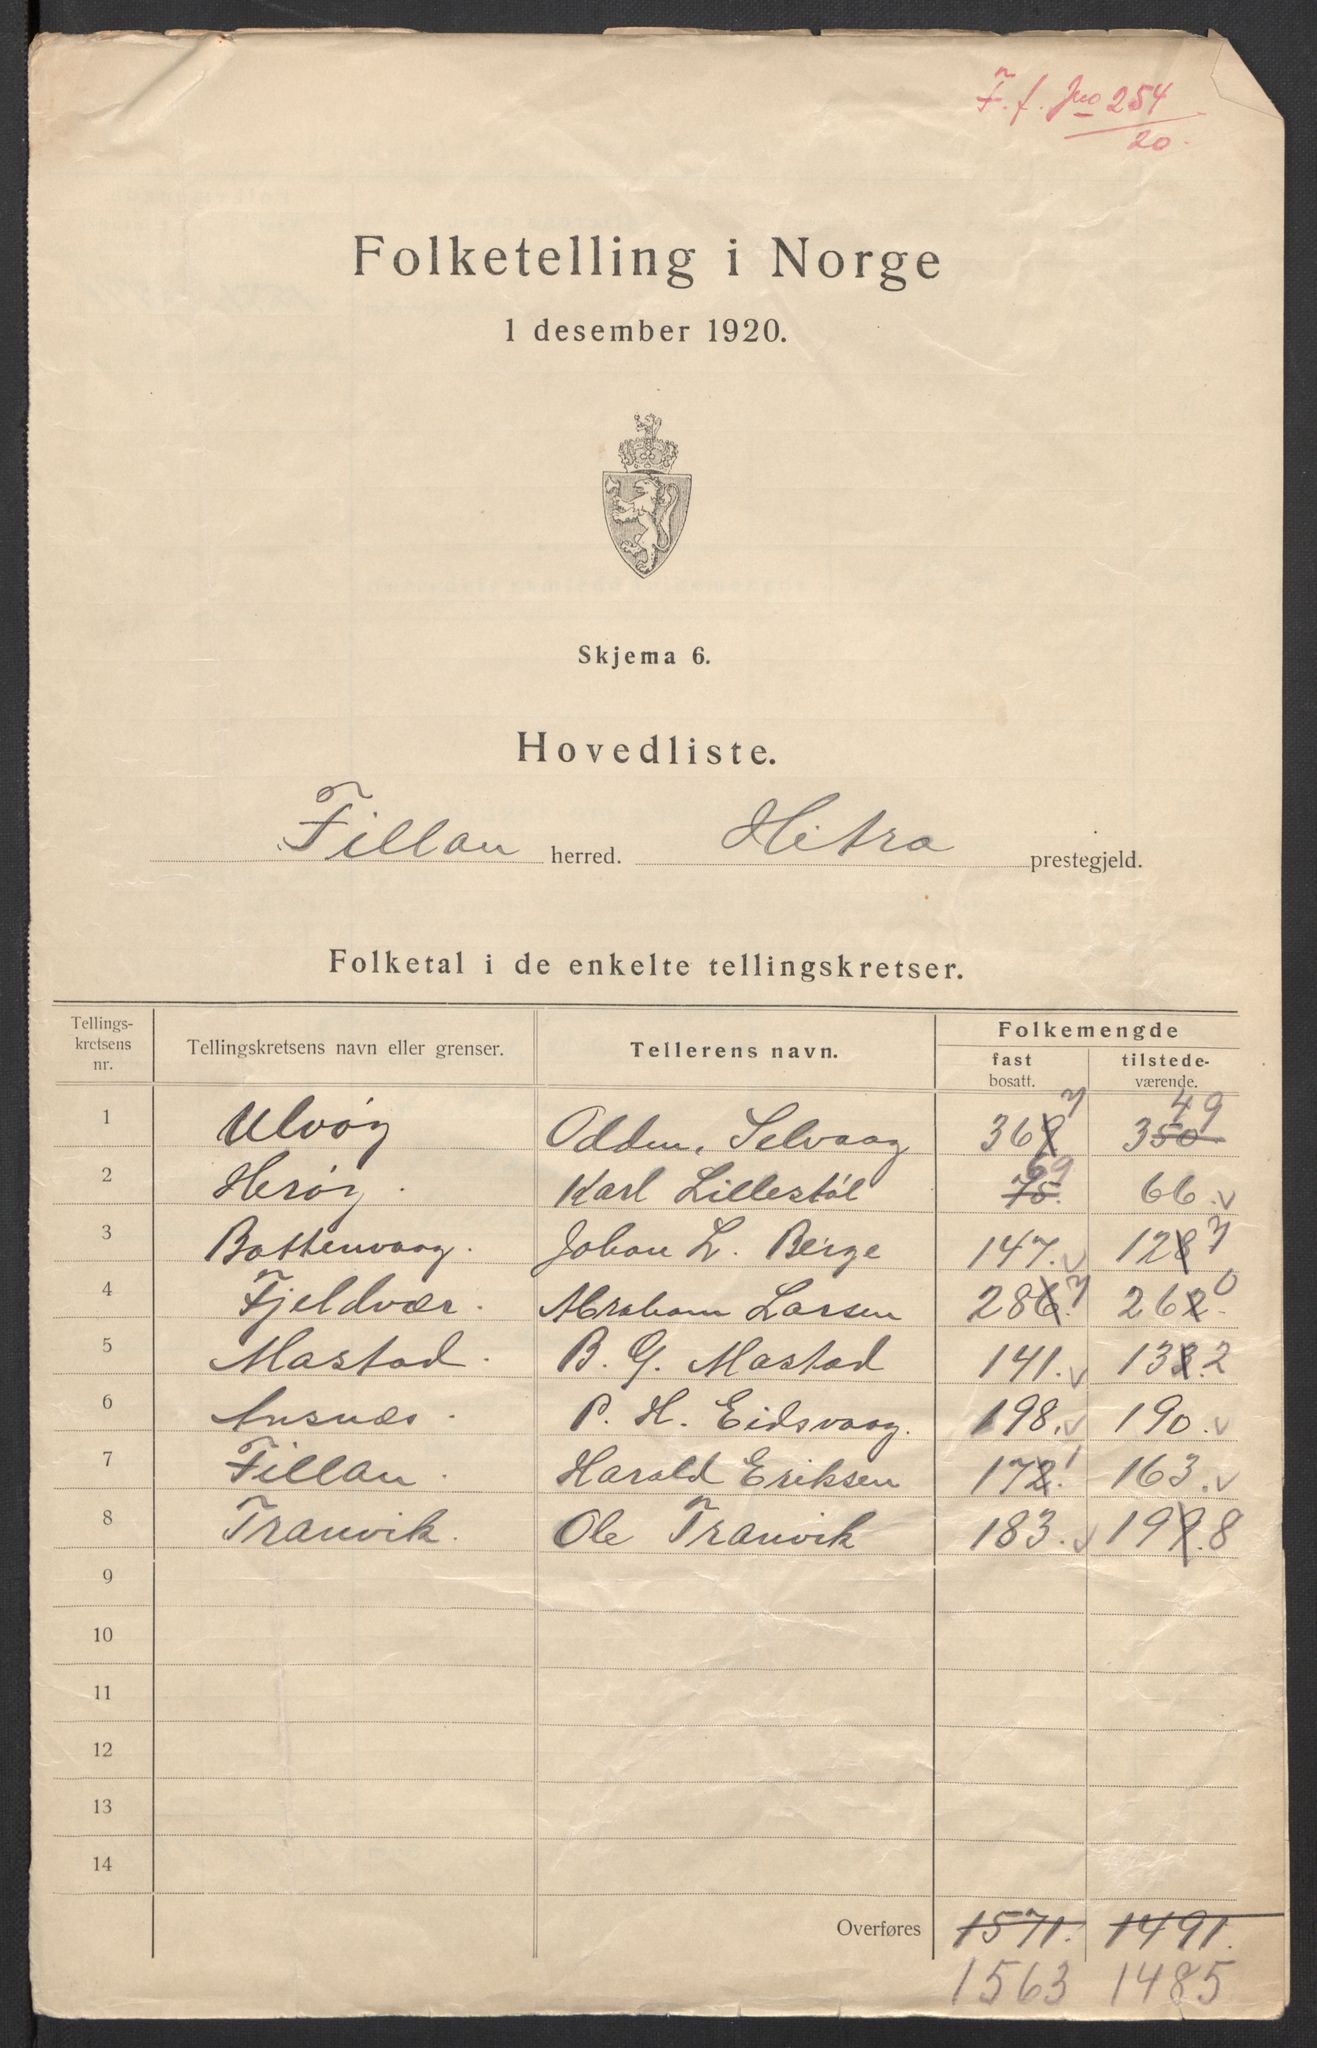 F. f. Jno 254/20.
Folketelling i Norge
1 desember 1920.
Skjema 6.
Hovedliste.
Fillan herred. Hitra prestegjeld.
Folketal i de enkelte tellingskretser.
Tellings-kretsens nr. Tellingskretsens navn eller grenser. Tellerens navn. Folkemengde fast bosatt. tilstede-værende.
1 Ulvøy Odden, Selvaag 369 7 350 49
2 Herøy. Karl Lillestøl 75. 69 66. v
3 Bottenvaag. Johan L. Berge 147. v 128 7
4 Fjeldvær. Abraham Larsen 286. 7 262. 0
5 Mastad. B. G. Mastad 141. v 133. 2
6 Ansnæs. P. H. Eidsvaag. 198. v 190. v
7 Fillan. Harald Eriksen 172. 1 163. v
8 Tranvik. Ole Tranvik 183. v 199. 8
9
10
11
12
13
14
Overføres 1571. 1491.
1563 1485